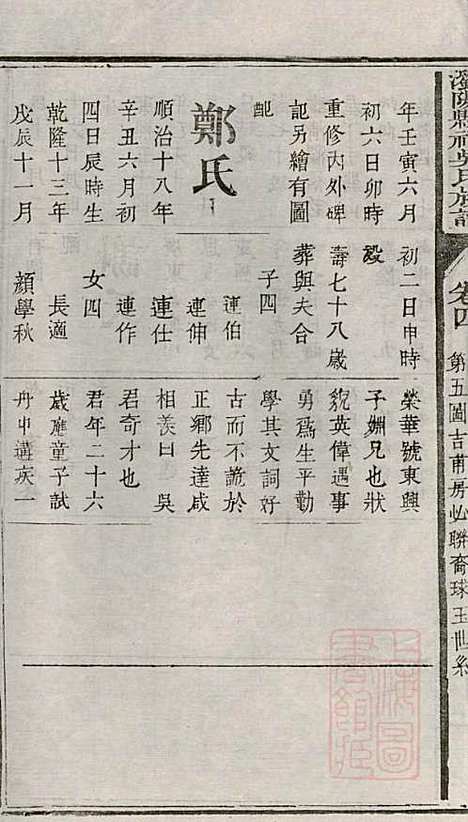 氏族譜
卷四
第五圖吉甫房必聯裔球玉世系
年壬寅六月
初六日卯時
重修內外碑
記另繪有圖
配
鄭氏
順治十八年
辛丑六月初
四日辰時生
乾隆十三年
戊辰十一月
初二日申時
歿
壽七十八歲
葬與夫合
子四
連伯
連伸
連仕
連作
女四
長適
顏學秋
榮華號東興
子嫻兄也狀
貌英偉遇事
勇為生平勤
學其文詞好
古而不詭於
正鄉先達咸
相羨曰吳
君奇才也
君年二十六
歲應童子試
舟中遘疾一
上海圖
書館藏